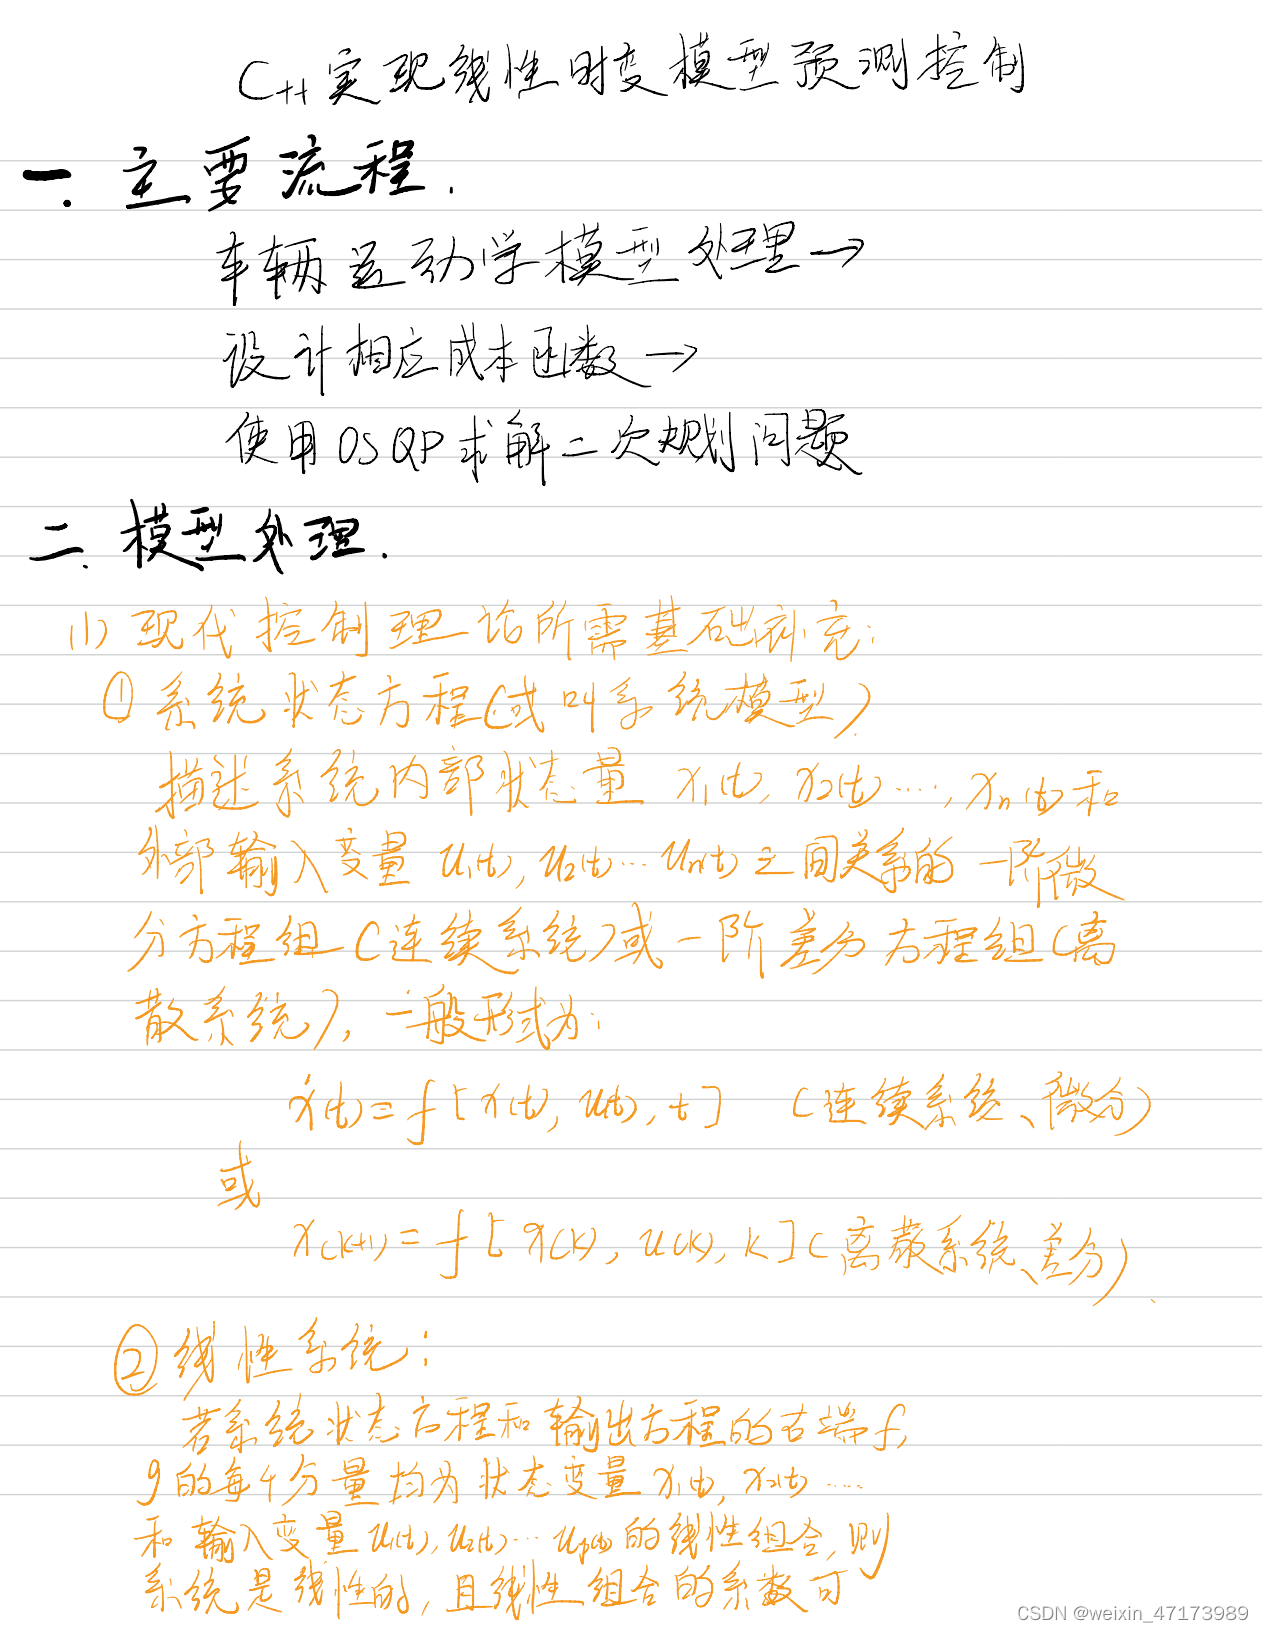 C++实现线性时变模型预测控制
一.主要流程.
车辆运动学模型处理→
设计相应成本函数→
使用OSQP求解二次规划问题
二.模型处理.
(1)现代控制理论所需基础补充:
①系统状态方程(或叫系统模型)
描述系统内部状态量 x₁(t), x₂(t)....,xₙ(t)和
外部输入变量 u₁(t), u₂(t)...uₙ(t)之间关系的一阶微
分方程组(连续系统)或一阶差分方程组(离
散系统),一般形式为:
ẋ(t)=f[x(t), u(t), t] (连续系统、微分)
或
x(k+1)=f[x(k), u(k), k](离散系统、差分)
②线性系统:
若系统状态方程和输出方程的右端f,
g的每个分量均为状态变量x₁(t), x₂(t)....
和输入变量u₁(t), u₂(t)...uₚ(t)的线性组合,则
系统是线性的,且线性组合的系数可
CSDN @weixin_47173989